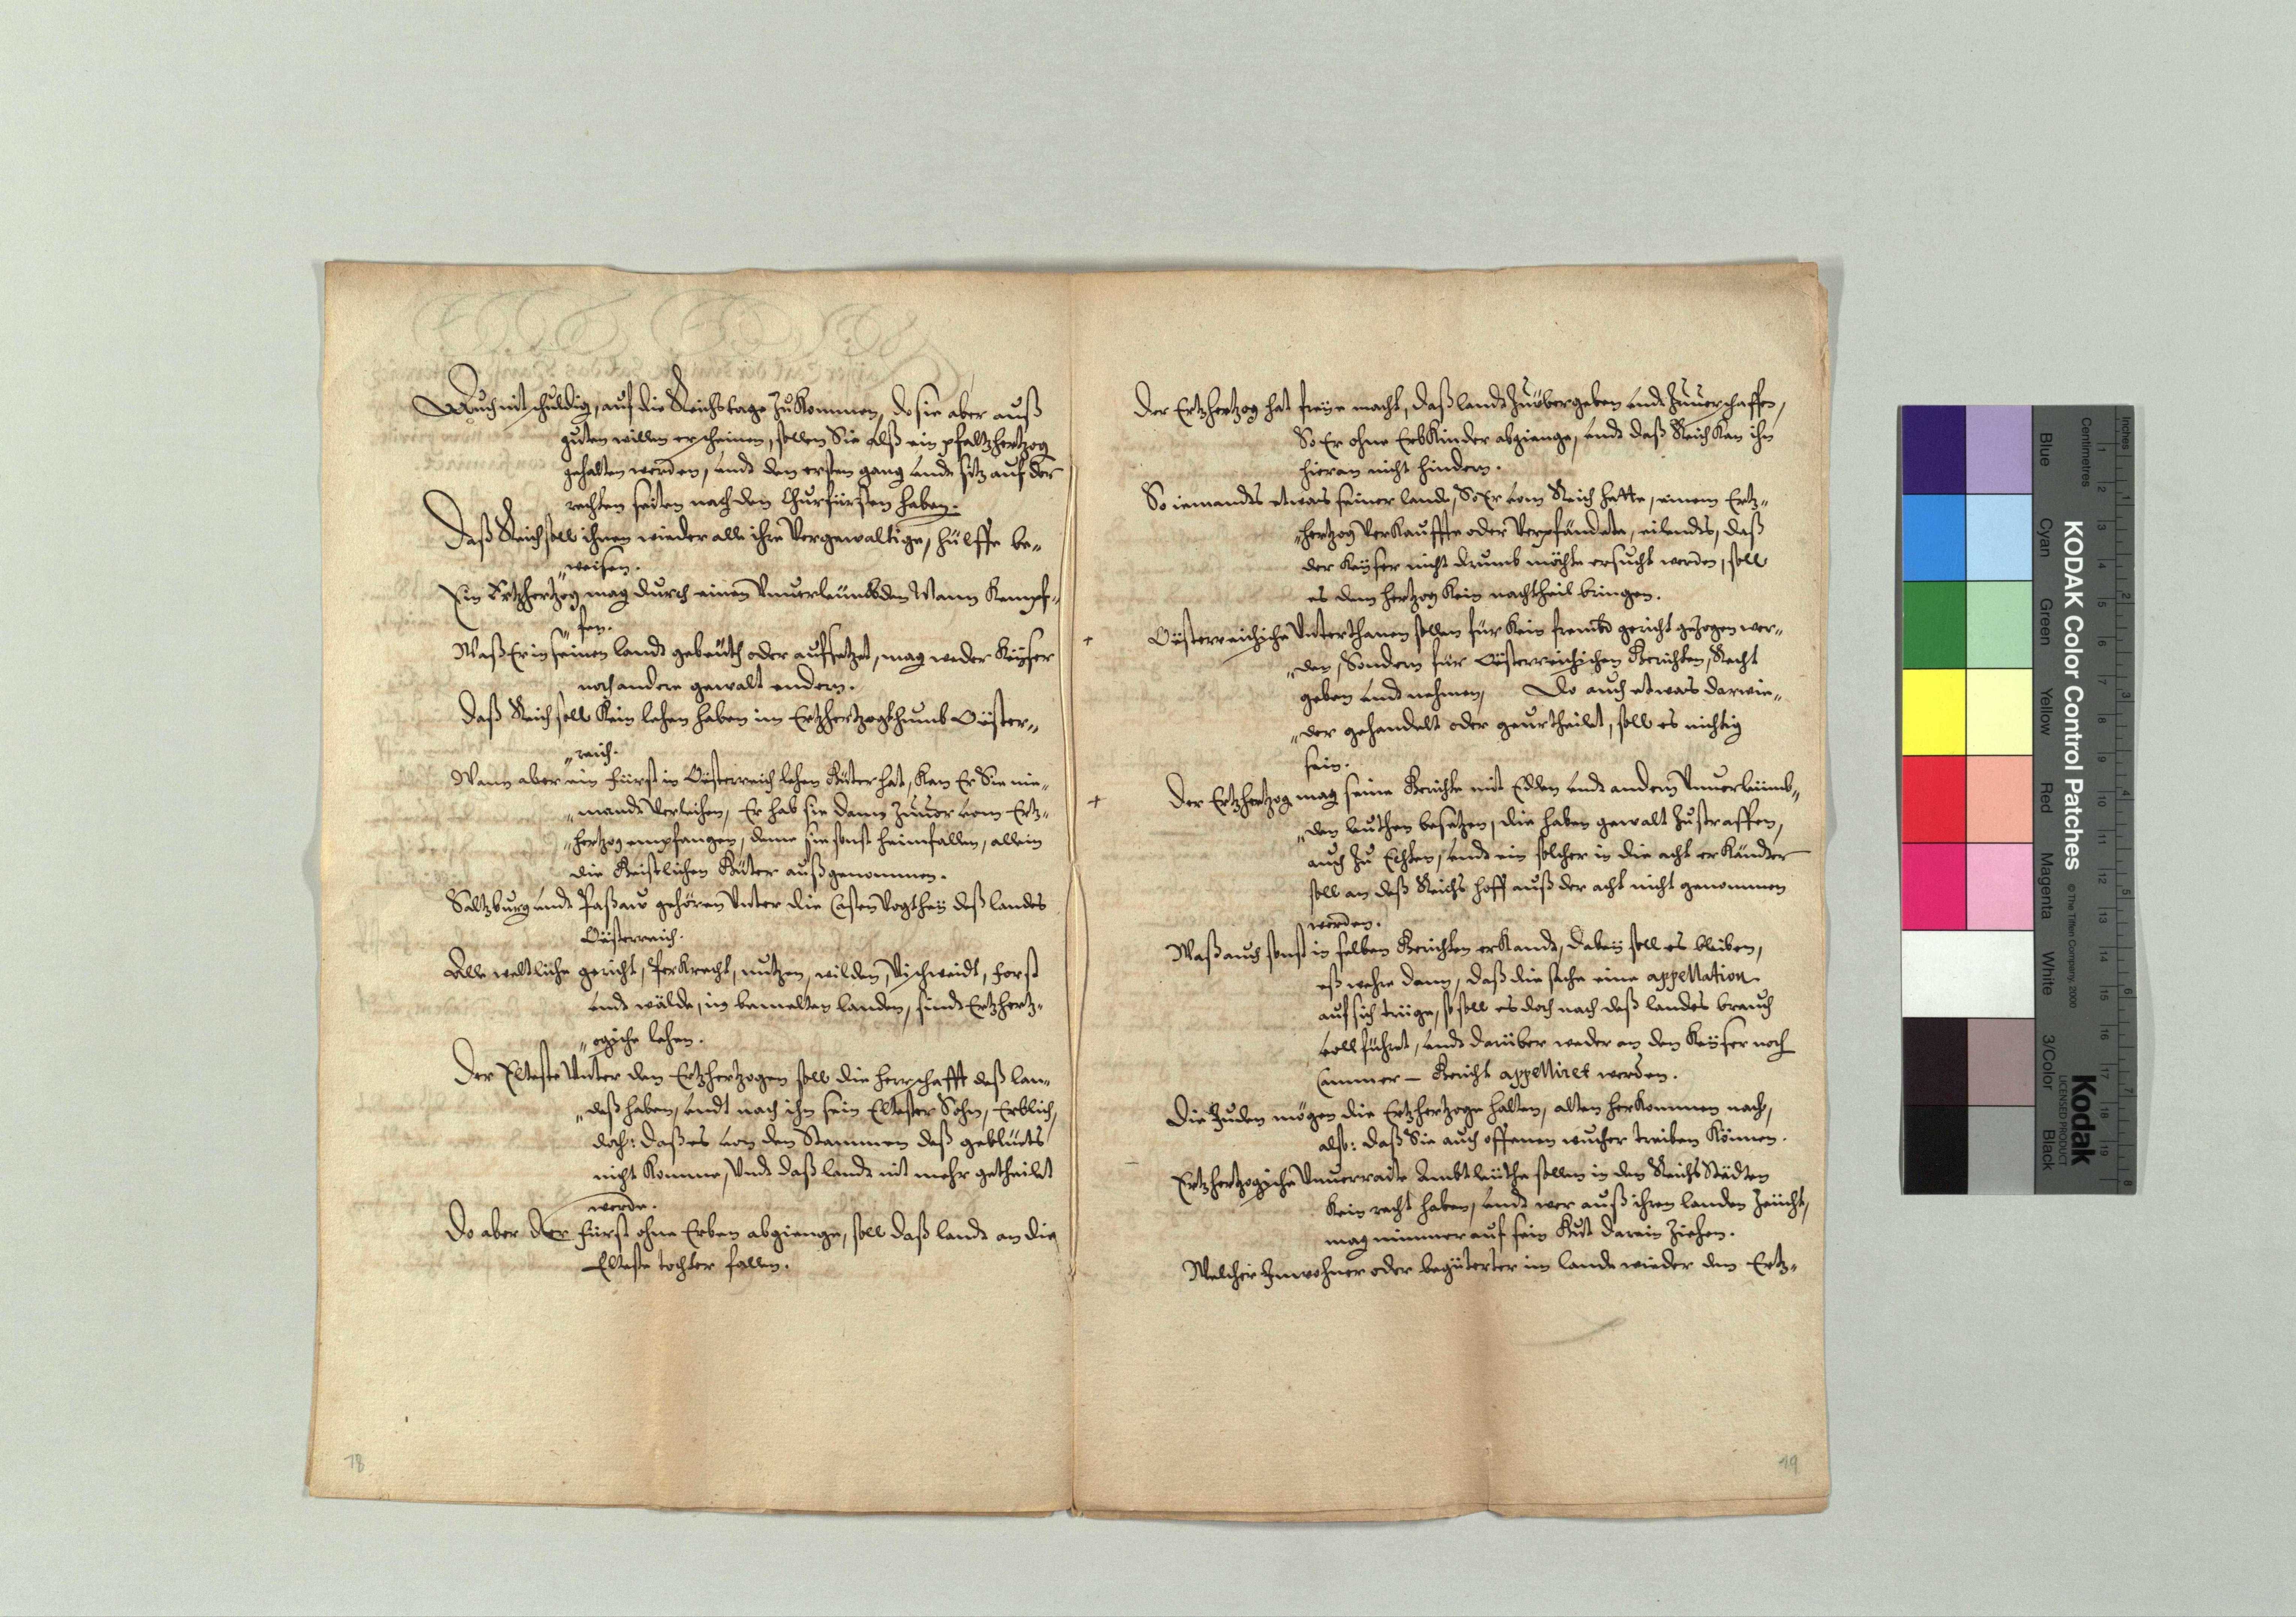 Auch nit schuldig, auf die Reichstage Zu Kommen, do sie aber auß
guten willen erscheinen, sollen Sie alß ein pfaltzhertzog
gehalten werden, undt den ersten gang undt sitz auf der
rechten seiten nach den Churfürsten haben.
Daß Reich soll ihnen wieder alle ihre Vergewaltige, hülffe be„
„weisen.
Ein Ertzhertzog mag durch einen Unuerleümbden Mann Kempf„
„fen.
Waß Er in seinen landt gebeüth oder aufsetzet, mag weder Keÿser
noch andere gewalt endern.
Daß Reich soll Kein lehen haben im Ertzhertzogthumb Oüster„
„reich.
Wann aber ein fürst in Oüsterreich lehen Güter hat, Kan Er Sie nie„
„mandt Verleihen, Er hab sie dann Zuuor vom Ertz„
„hertzog empfangen, denne sie sonst heimfallen, allein
die Geistlichen Güter außgenommen.
Saltzburg undt Paßaw gehören Unter die CastenVogtheÿ deß landes
Oüsterreich.
Alle weltliche gericht, PerKrecht, nutzen, wilden, Vischweidt, forst
undt wälde, in bemelten landen, sindt Ertzhertz„
„ogiche lehen.
Der Elteste Unter den Ertzhertzogen soll die herrschafft deß lan„
„deß haben, undt nach ihn sein Eltester Sohn, Erblich,
doch: daß es von den Stammen deß geblüets
nicht Komme, Undt daß landt nit mehr getheilet
werde.
Do aber der fürst ohne Erben abgienge, soll daß landt an die
Elteste tochter fallen.
18
Der Ertzhertzog hat freÿe macht, daß landt Zuübergeben undt Zuuerschaffen,
So Er ohne ErbKinder abgienge, undt daß Reich Kan ihn
hieran nicht hindern.
So iemandts etwas seiner lande, So Er vom Reich hette, einem Ertz„
„hertzog VerKauffte oder Verpfändete, eilendts, daß
der Keÿser nicht drumb möchte ersucht werden, soll
es dem hertzog Kein nachtheil bringen.
+ Oüsterreichiche Unterthanen sollen für Kein frembd gericht gezogen wer„
„den, Sondern für Oüsterreichichen Gerichten, Recht
geben undt nehmen, Do auch etwas darwie„
„der gehandelt oder geurtheilet, soll es nichtig
sein.
+ Der Ertzhertzog mag seine Gerichte mit Edlen undt andern Unuerleümb„
„den leuthen besetzen, die haben gewalt Zustraffen,
auch Zu Echten, undt ein solcher in die acht erKändter
soll an deß Reichs hoff auß der acht nicht genommen
werden.
Waß auch sonst in selben Gerichten erKandt, dabeÿ soll es bleiben,
eß wehre dann, daß die sache eine appellation
auf sich trüge, so soll es doch nach deß landes brauch
vollführet, undt darüber weder an den Keÿser noch
Cammer – Gericht appelliret werden.
Die Juden mögen die Ertzhertzoge halten, alten herKommen nach,
also: daß Sie auch offenen wucher treiben Können.
Ertzhertzogiche Unuerraite Ambtleüthe sollen in den ReichsStädten
Kein recht haben, undt wer auß ihren landen Zeücht,
mag nimmer auf sein Gut darein Ziehen.
Welcher Inwohner oder begüterter im lande wieder den Ertz„
19
KODAK Color Control Patches
© The Tiffen Company, 2000
Kodak
LICENSED PRODUCT
Inches
Centimetres
Blue
Cyan
Green
Yellow
Red
Magenta
White
3/Color
Black